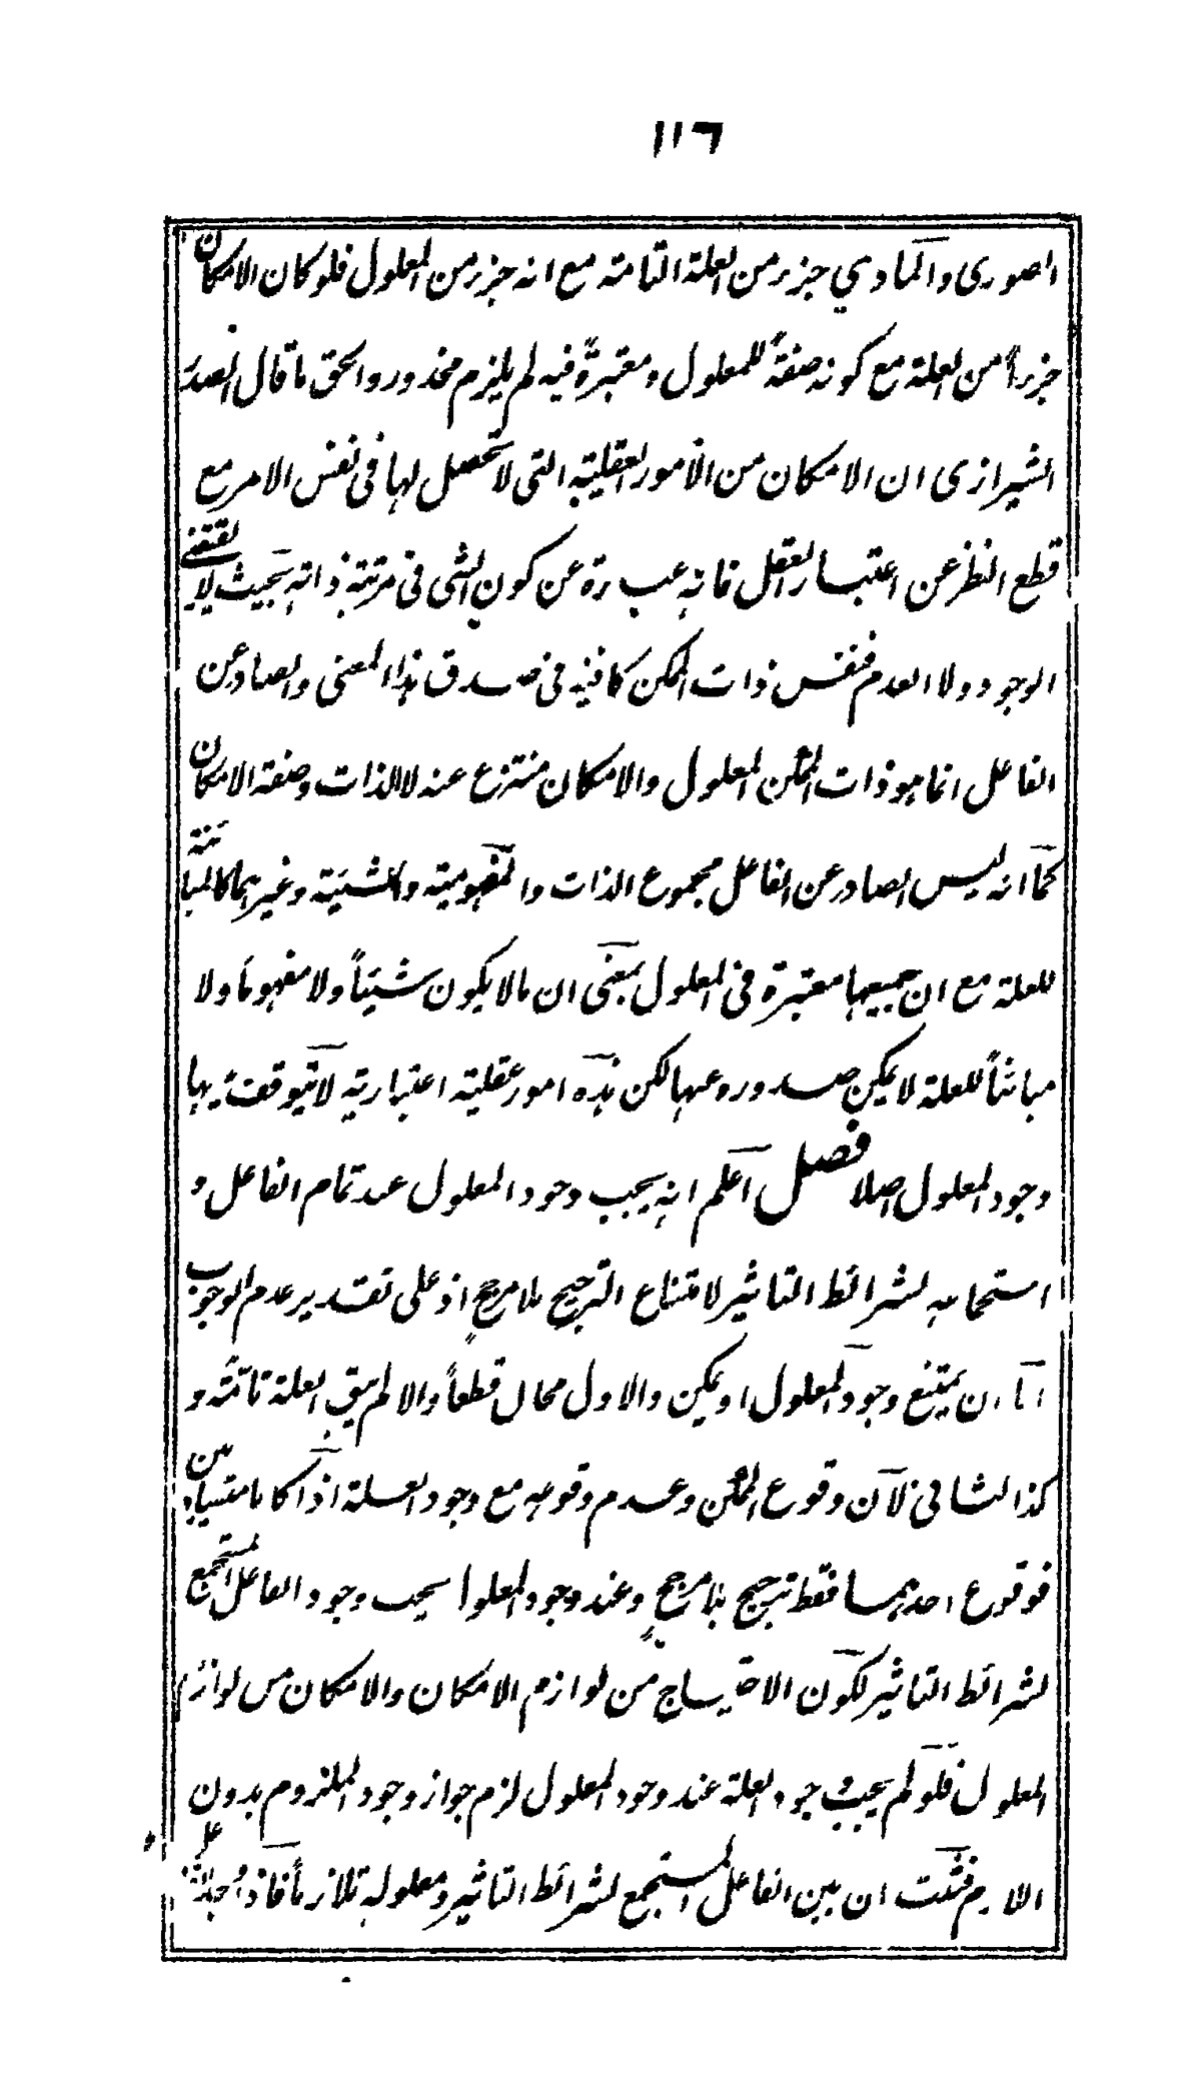 ١١٦
الصوري والمادي جزء من العلة التامة مع انه جزء من المعلول فلو كان الامكان
جزءاً من العلة مع كونه صفةً للمعلول ومعتبرةً فيه لم يلزم محذور والحق ما قال الصدر
الشيرازي ان الامكان من الامور العقلية التي لا تحصل لها في نفس الامر مع
قطع النظر عن اعتبار العقل فانه عبارة عن كون الشي في مرتبة ذاته بحيث لا يقتضي
الوجود ولا العدم فنفس ذات الممكن كافية في صدق هذا المعنى والصادر عن
الفاعل انما هو ذات الممكن المعلول والامكان منتزع عنه لا الذات وصفة الامكان
كما انه ليس الصادر عن الفاعل مجموع الذات والمفهومية والشيئية وغيرهما كالمباينة
للعلة مع ان جميعها معتبرة في المعلول بمعنى ان ما لا يكون شيئاً ولا مفهوماً ولا
مبائناً للعلة لا يمكن صدوره عنها لكن هذه امور عقلية اعتبارية لا يتوقف بها
وجود المعلول اصلا فصل اعلم انه يجب وجود المعلول عند تمام الفاعل و
استجماعه لشرائط التاثير لامتناع الترجيح بلا مرجح اذ على تقدير عدم الوجوب
اما ان يمتنع وجود المعلول او يمكن والاول محال قطعاً والا لم يبق العلة تامّة و
كذا الثاني لان وقوع الممكن وعدم وقوعه مع وجود العلة اذا كانا متساويين
فوقوع احدهما فقط ترجيح بلا مرجح وعند وجود المعلول يجب وجود الفاعل المستجمع
لشرائط التاثير لكون الاحتياج من لوازم الامكان والامكان من لوازم
المعلول فلو لم يجب وجود العلة عند وجود المعلول لزم جواز وجود الملزوم بدون
اللازم فثبت ان بين الفاعل المستجمع لشرائط التاثير ومعلوله تلازماً فاذا وجد